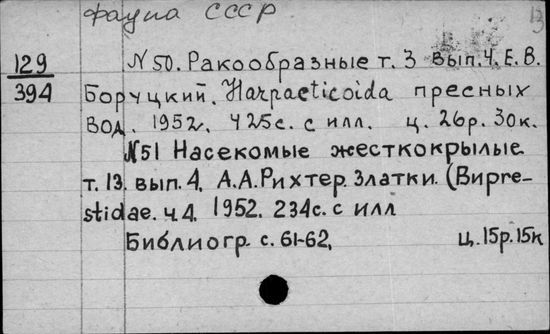 фауна СССР
13
129
394
N 50. Ракообразные т. 3 вып. 4. Е. В.
Боруцкий. Harpacticoida пресных
вод. 1952. 425 с. с илл. ц. 26р. 30к.
N 51 Насекомые жесткокрылые
т. 13. вып. 4. А.А. Рихтер. Златки. (Bupre-
stidae. ч. 4. 1952. 234 с. с илл
Библиогр. с. 61-62, ц. 15р. 15к